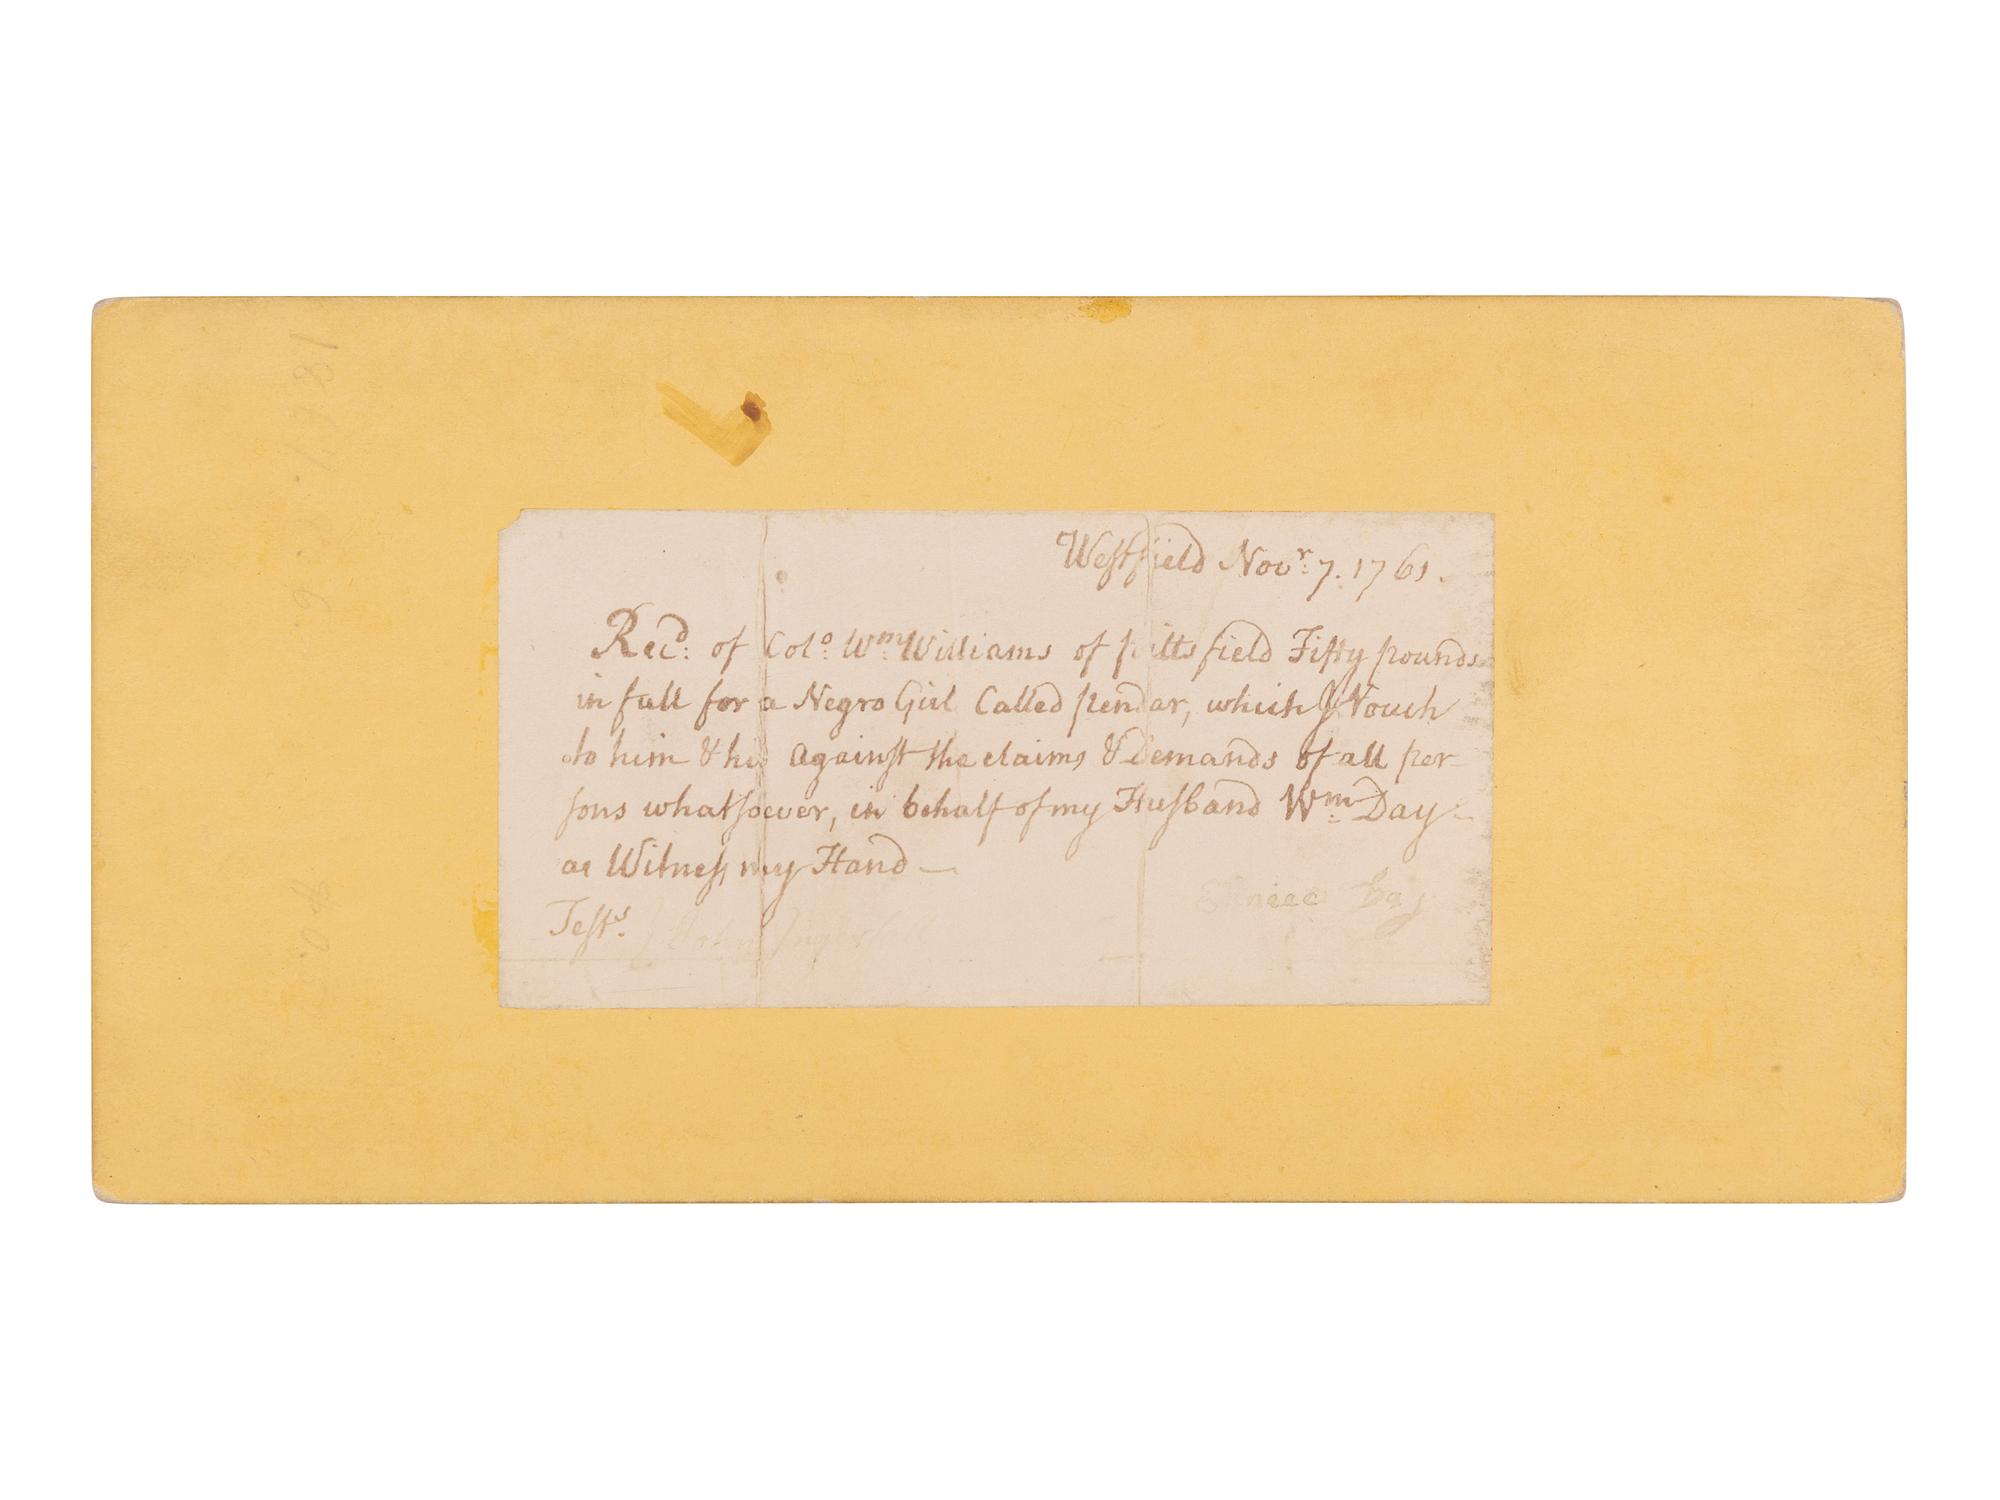 Westfield Novr. 7. 1761.
Recd. of Colo. Wm. Williams of pittsfield Fifty pounds
in full for a Negro Girl Called pendar, which I Vouch
to him & his against the claims & Demands of all per-
sons whatsoever, in behalf of my Husband Wm. Day
as Witness my Hand —
Eunice Day
Tests. John Ingersoll